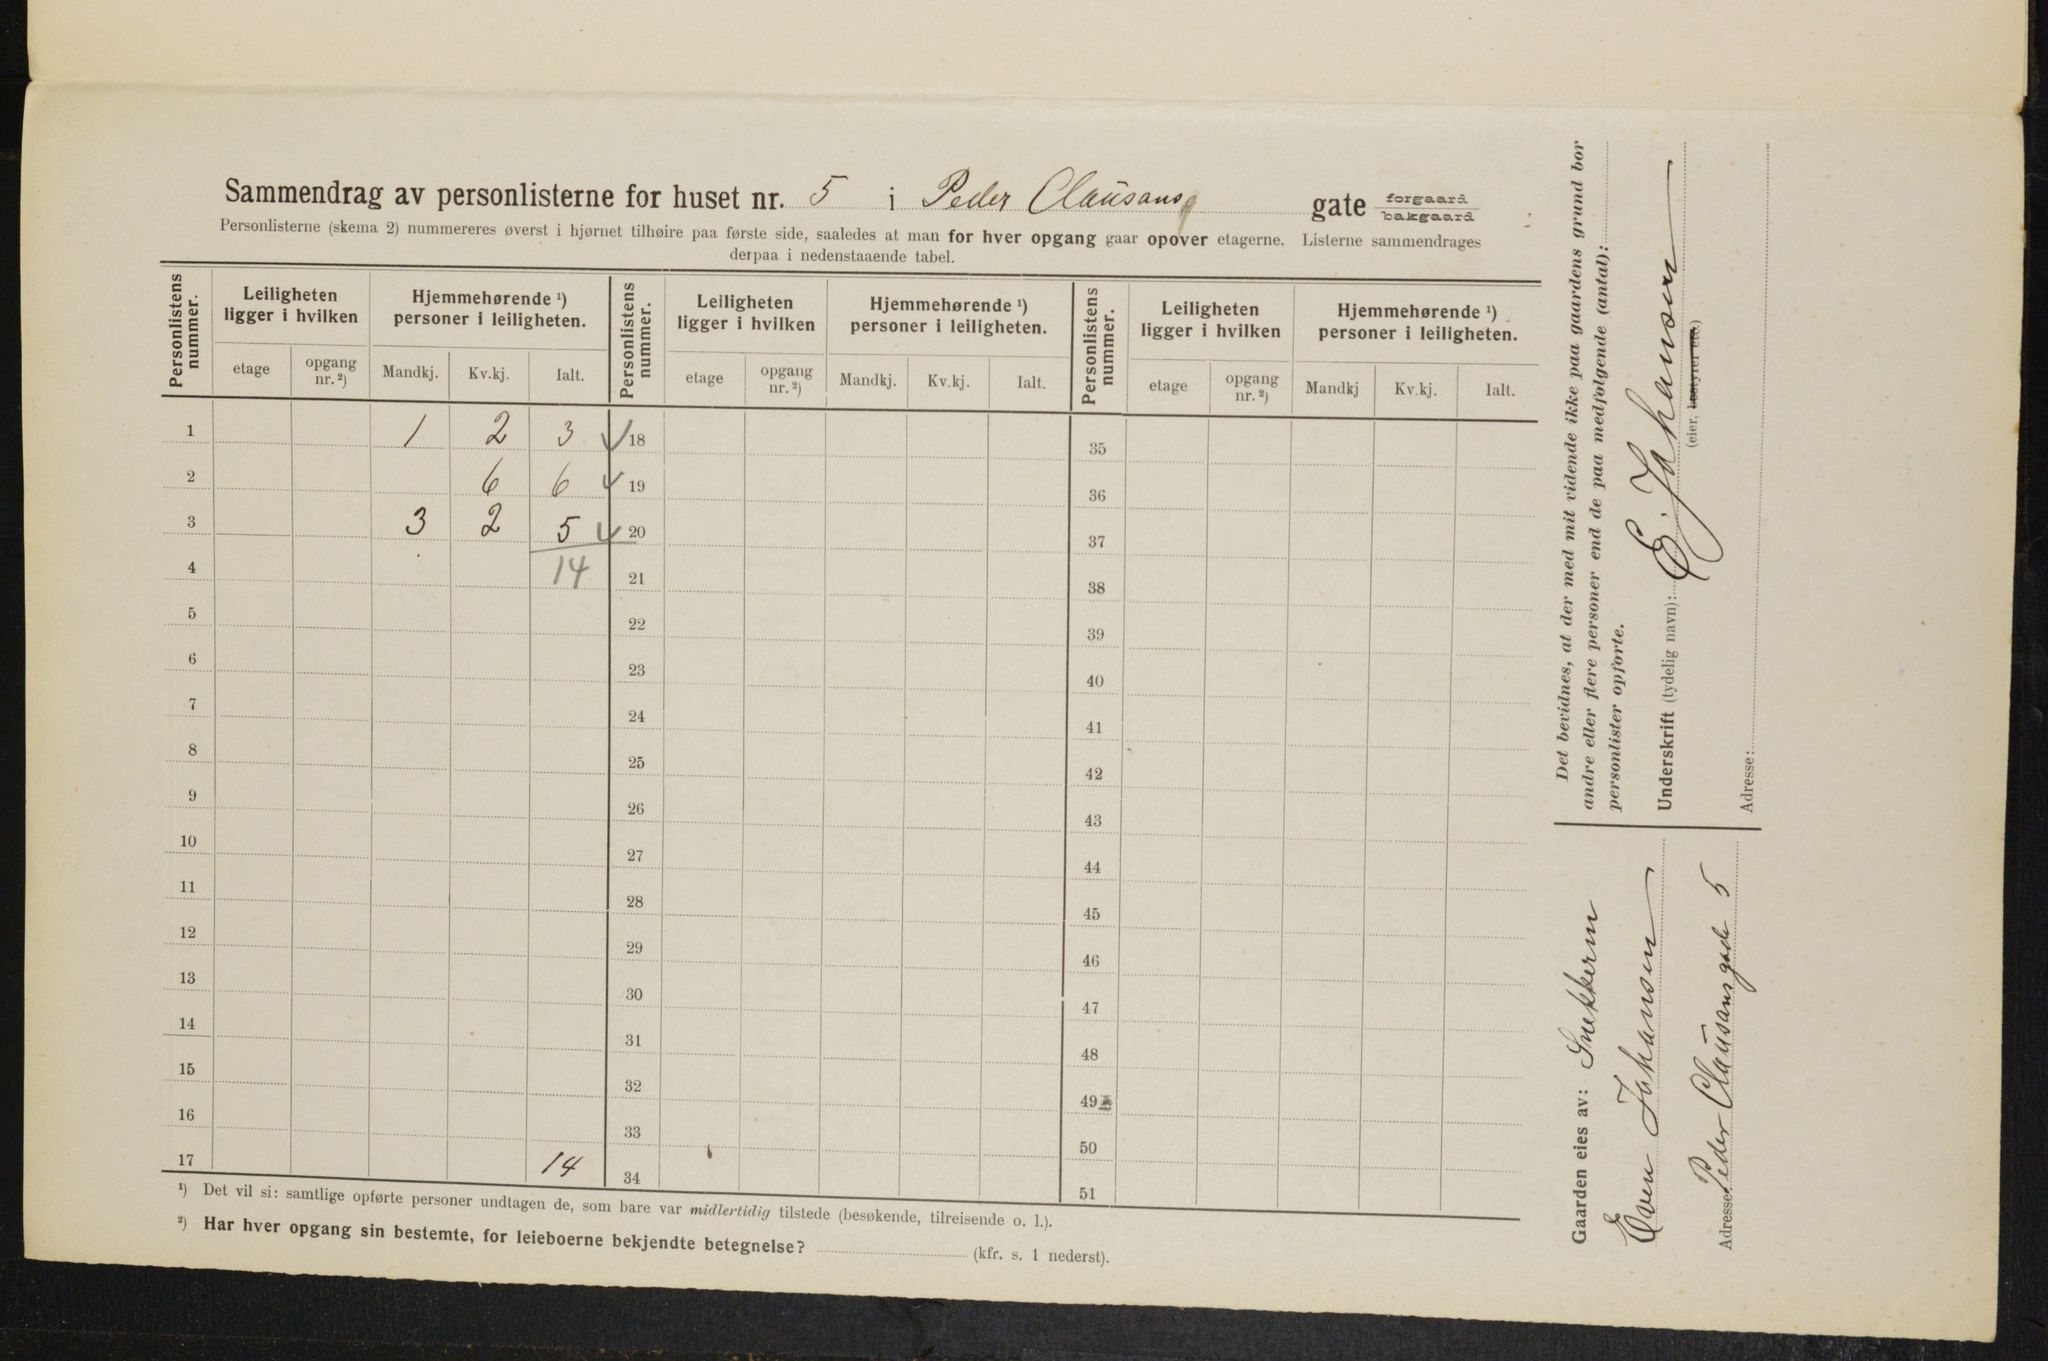 Sammendrag av personlisterne for huset nr. 5 i Peder Clausens gate forgaard bakgaard
Personlisterne (skema 2) nummereres øverst i hjørnet tilhøire paa første side, saaledes at man for hver opgang gaar opover etagerne. Listerne sammendrages
derpaa i nedenstaaende tabel.
Personlistens nummer. Leiligheten ligger i hvilken Hjemmehørende ¹) personer i leiligheten. Personlistens nummer. Leiligheten ligger i hvilken Hjemmehørende ¹) personer i leiligheten. Personlistens nummer. Leiligheten ligger i hvilken Hjemmehørende ¹) personer i leiligheten.
etage opgang nr. ²) Mandkj. Kv.kj. Ialt. etage opgang nr. ²) Mandkj. Kv.kj. Ialt. etage opgang nr. ²) Mandkj Kv.kj. Ialt.
1 1 2 3 18 35
2 6 6 19 36
3 3 2 5 20 37
4 14 21 38
5 22 39
6 23 40
7 24 41
8 25 42
9 26 43
10 27 44
11 28 45
12 29 46
13 30 47
14 31 48
15 32 49
16 33 50
17 14 34 51
¹) Det vil si: samtlige opførte personer undtagen de, som bare var midlertidig tilstede (besøkende, tilreisende o. l.).
²) Har hver opgang sin bestemte, for leieboerne bekjendte betegnelse? (kfr. s. 1 nederst).
Det bevidnes, at der med mit vidende ikke paa gaardens grund bor
andre eller flere personer end de paa medfølgende (antal):
personlister opførte.
Underskrift (tydelig navn): E. Johansen
(eier, bestyrer etc.)
Adresse:
Gaarden eies av: Snekkerm
Even Johansen
Adresse: Peder Clausensgade 5